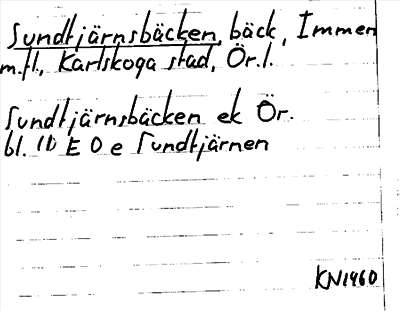 Sundtjärnsbäcken, bäck, Immen
m.fl., Karlskoga stad, Ör.l.
Sundtjärnsbäcken ek Ör.
bl. 10 E 0 e Sundtjärnen
KN1960